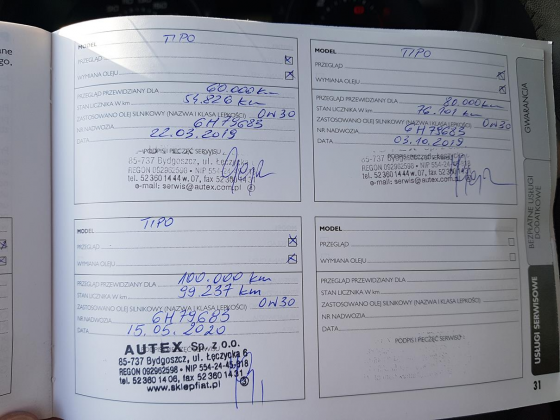 MODEL TIPO
PRZEGLĄD
WYMIANA OLEJU
PRZEGLĄD PRZEWIDZIANY DLA 60.000 km
STAN LICZNIKA W km 54.826 km
ZASTOSOWANO OLEJ SILNIKOWY (NAZWA I KLASA LEPKOŚCI) 0W30
NR NADWOZIA 6H79685
DATA 22.03.2019
PODPIS I PIECZĘĆ SERWISU
85-737 Bydgoszcz, ul. Łęczycka
REGON 092962598 • NIP 554-24
tel. 52 360 14 44 w. 07, fax 52 360
e-mail: serwis@autex.com.pl
MODEL TIPO
PRZEGLĄD
WYMIANA OLEJU
PRZEGLĄD PRZEWIDZIANY DLA 80.000 km
STAN LICZNIKA W km 76.101 km
ZASTOSOWANO OLEJ SILNIKOWY (NAZWA I KLASA LEPKOŚCI) 0W30
NR NADWOZIA 6H79685
DATA 03.10.2019
85-737 Bydgoszcz, ul.
REGON 092962598 • NIP 554
tel. 52 360 14 44 w. 07, fax 52 360
e-mail: serwis@autex.com.pl
MODEL TIPO
PRZEGLĄD
WYMIANA OLEJU
PRZEGLĄD PRZEWIDZIANY DLA 100.000 km
STAN LICZNIKA W km 99.237 km
ZASTOSOWANO OLEJ SILNIKOWY (NAZWA I KLASA LEPKOŚCI) 0W30
NR NADWOZIA 6H79685
DATA 15.05.2020
AUTEX Sp. z o.o.
85-737 Bydgoszcz, ul. Łęczycka 6
REGON 092962598 • NIP 554-24-45-918
tel. 52 360 14 06, fax 52 360 14 31
www.sklepfiat.pl
3
MODEL
PRZEGLĄD
WYMIANA OLEJU
PRZEGLĄD PRZEWIDZIANY DLA
STAN LICZNIKA W km
ZASTOSOWANO OLEJ SILNIKOWY (NAZWA I KLASA LEPKOŚCI)
NR NADWOZIA
DATA
PODPIS I PIECZĘĆ SERWISU
GWARANCJA
BEZPŁATNE USŁUGI
DODATKOWE
USŁUGI SERWISOWE
31